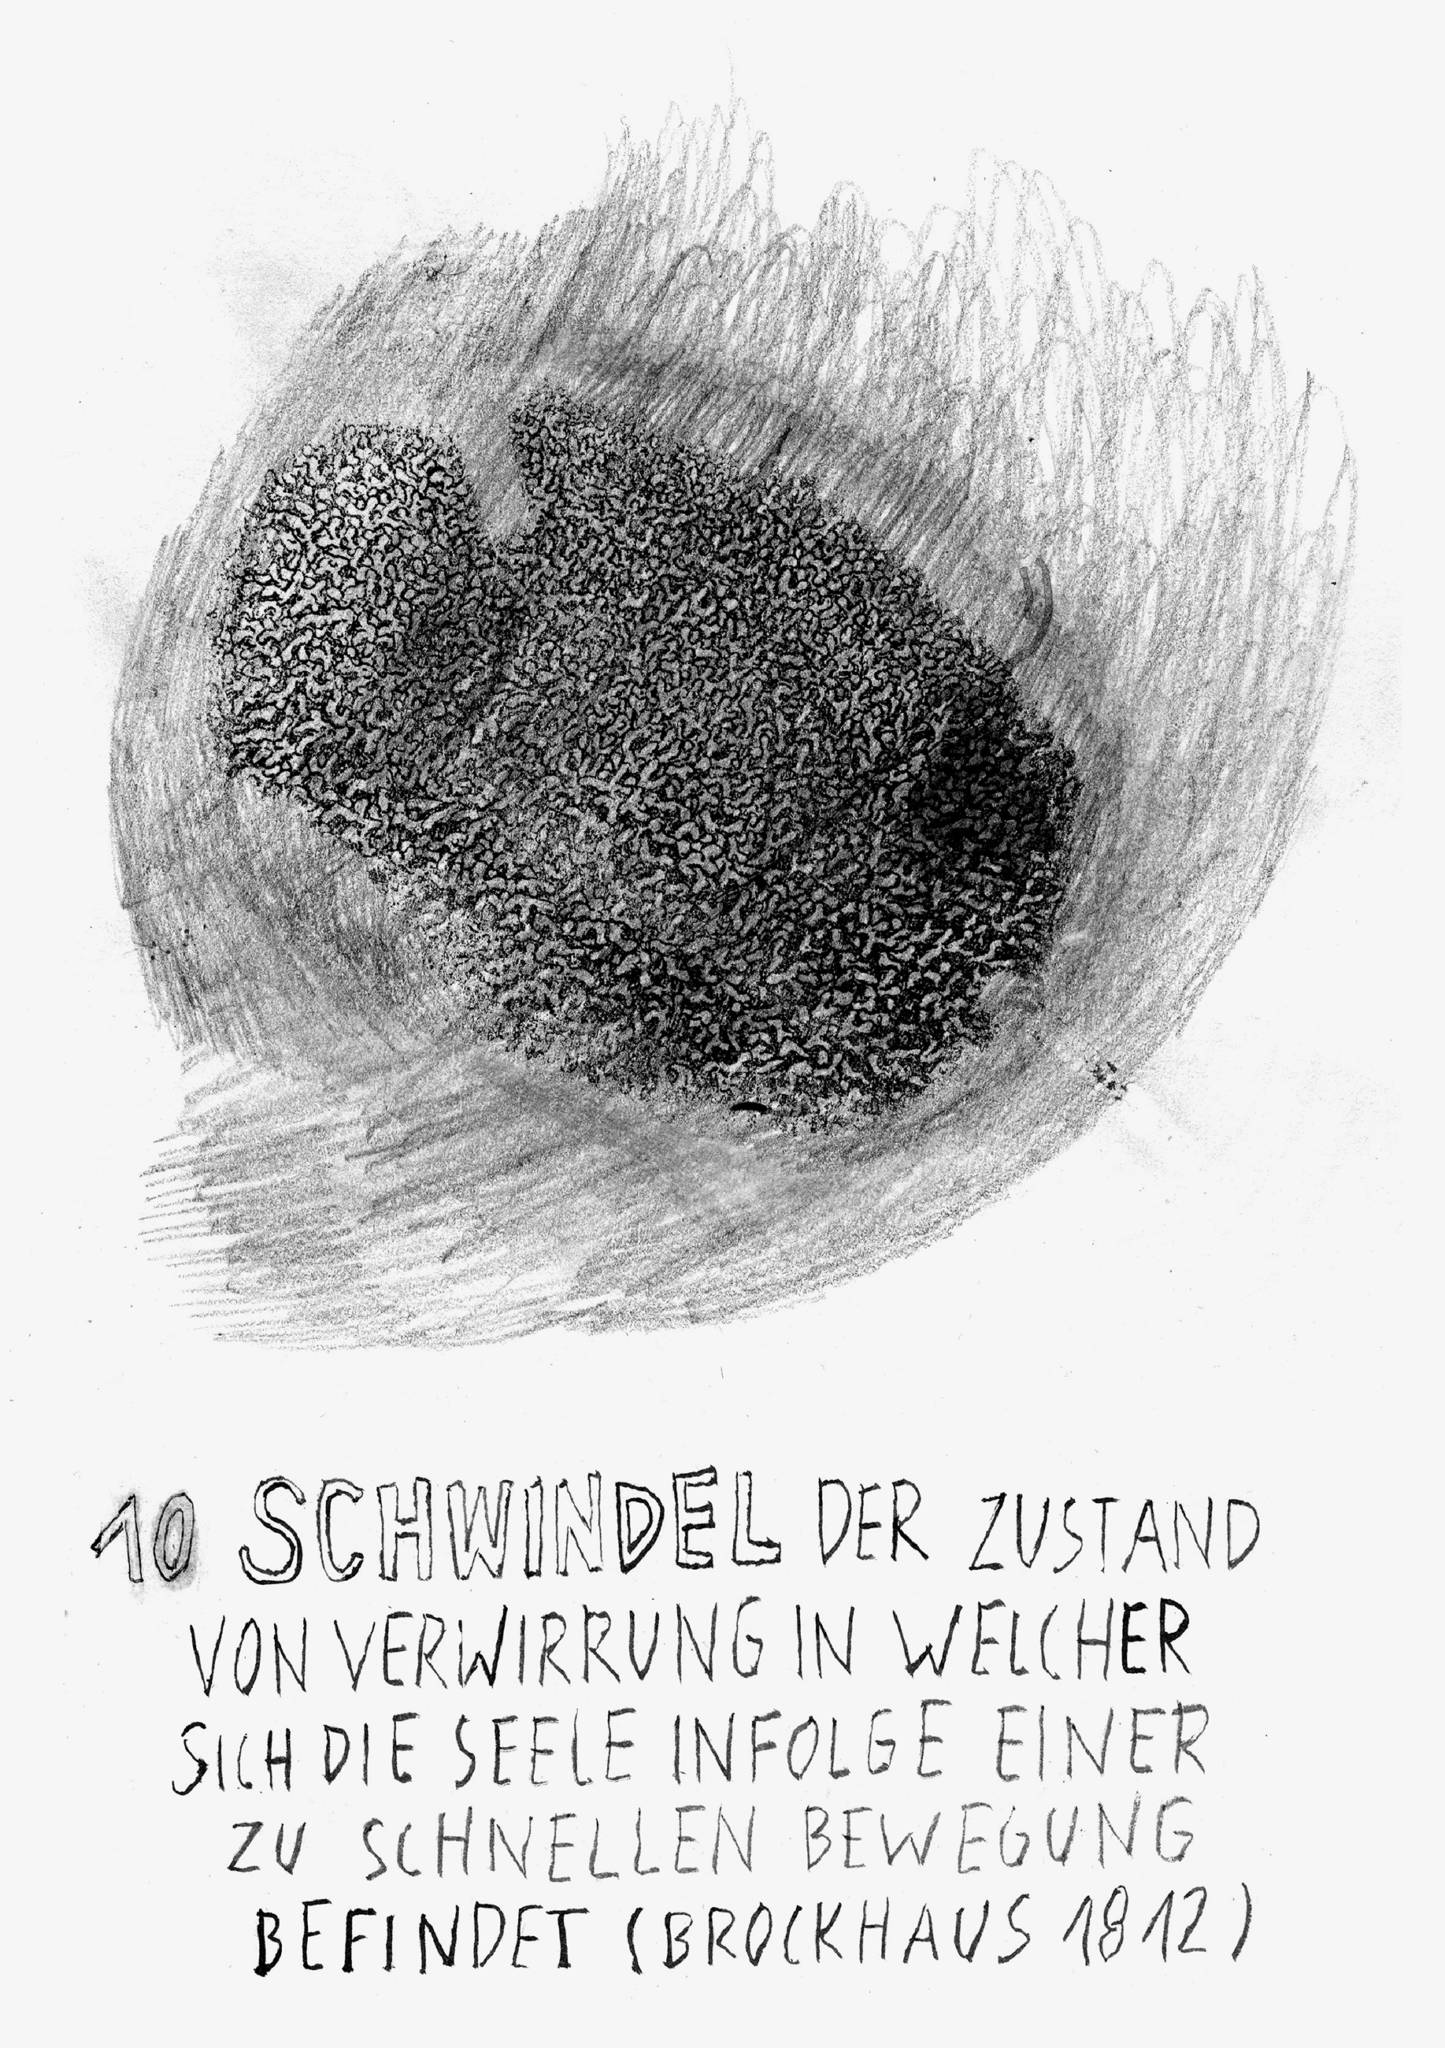 10 SCHWINDEL DER ZUSTAND
VON VERWIRRUNG IN WELCHER
SICH DIE SEELE INFOLGE EINER
ZU SCHNELLEN BEWEGUNG
BEFINDET (BROCKHAUS 1812)